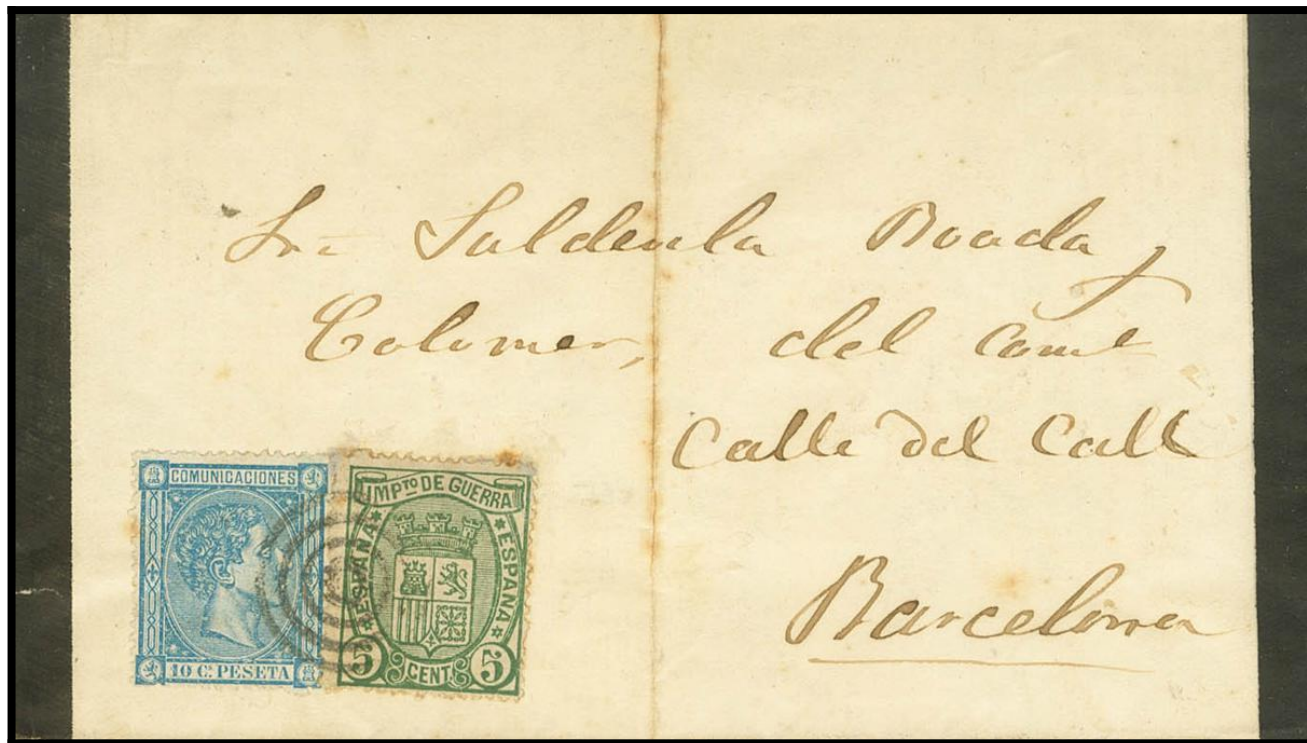 Sr. Saldeula Boada y
Colomer, del Comº
Calle del Call
Barcelona
COMUNICACIONES
10 Cs. PESETA
IMPTO DE GUERRA
ESPAÑA
ESPAÑA
5 CENTS. 5